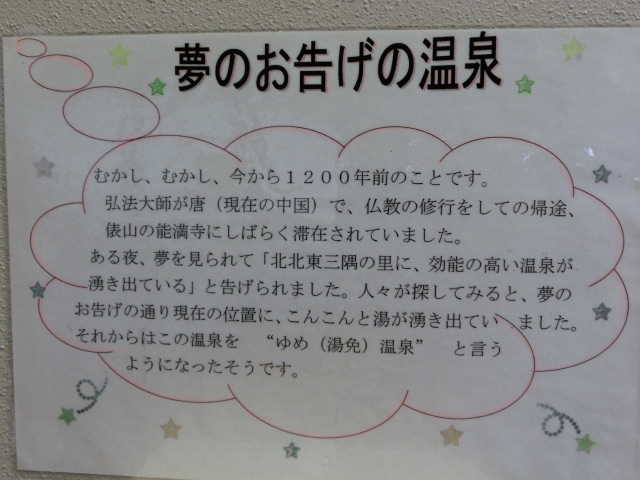 夢のお告げの温泉
むかし、むかし、今から１２００年前のことです。
弘法大師が唐（現在の中国）で、仏教の修行をしての帰途、
俵山の能満寺にしばらく滞在されていました。
ある夜、夢を見られて「北北東三隅の里に、効能の高い温泉が
湧き出ている」と告げられました。人々が探してみると、夢の
お告げの通り現在の位置に、こんこんと湯が湧き出てい ました。
それからはこの温泉を “ゆめ（湯免）温泉” と言う
ようになったそうです。